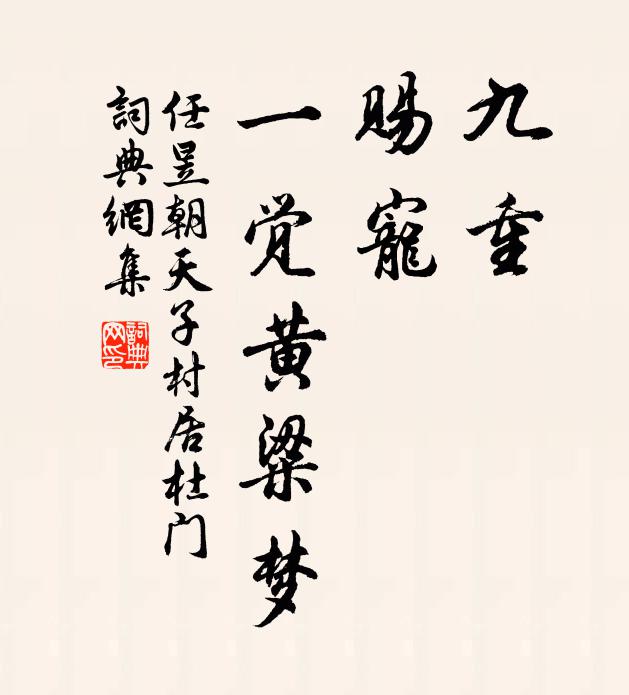 九重
賜寵
一觉黄粱梦
任昱朝天子村居杜门
詞典網集
詞典网印